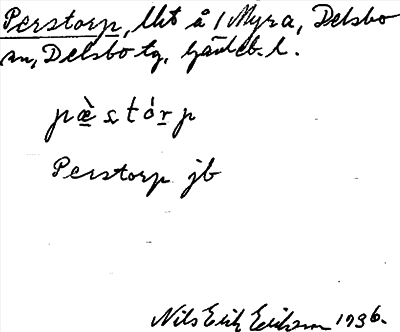 Perstorp, lht å 1 Myra, Delsbo
sn, Delsbo tg, Gävleb. l.
pæ̀ståṛp
Perstorp jb
Nils Erik Erikson 1936.